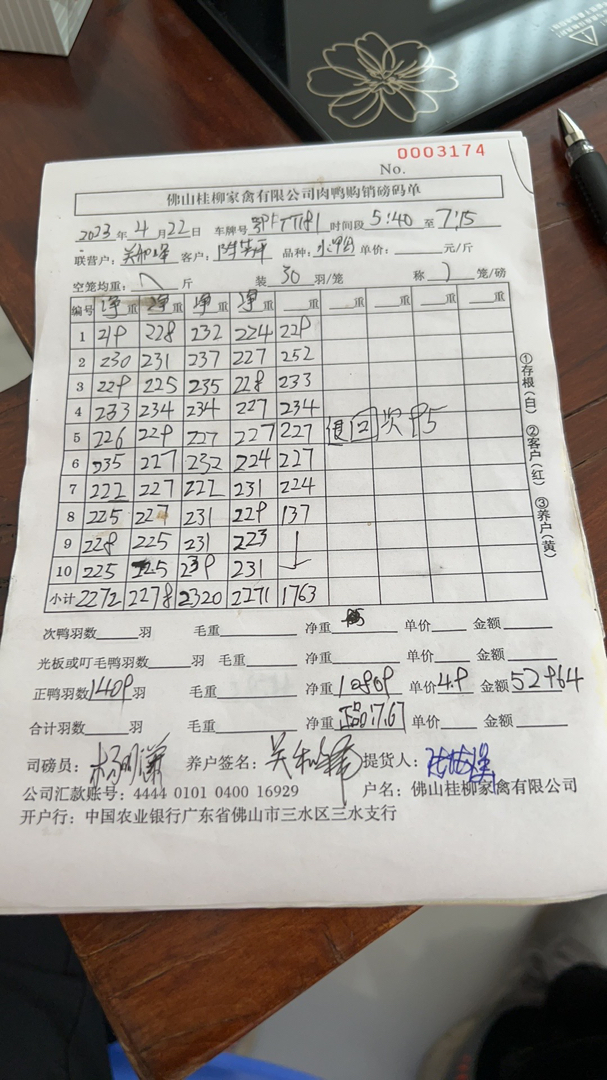 0003174
No.
佛山桂柳家禽有限公司肉鸭购销磅码单
2023年4月22日 车牌号 时间段5:40至7:15
联营户: 客户: 品种: 单价: 元/斤
空笼均重: 斤 装30羽/笼 称 笼/磅
编号 净重 净重 净重 净重 重 重 重 重 重
1 219 228 232 224 229
2 230 231 237 227 252
3 229 225 235 228 233
4 233 234 234 227 234
5 226 229 227 227 227 退回次 95
6 235 227 232 224 227
7 222 227 222 231 224
8 225 227 231 229 137
9 228 225 231 223
10 225 225 239 231
小计 2272 2278 2320 2271 1763
①存根(白) ②客户(红) ③养户(黄)
次鸭羽数 羽 毛重 净重 单价 金额
光板或叮毛鸭羽数 羽 毛重 净重 单价 金额
正鸭羽数1409羽 毛重 净重10809 单价4.9 金额52964
合计羽数 羽 毛重 净重 单价 金额
司磅员: 养户签名: 提货人:
公司汇款账号: 4444 0101 0400 16929 户名: 佛山桂柳家禽有限公司
开户行: 中国农业银行广东省佛山市三水区三水支行